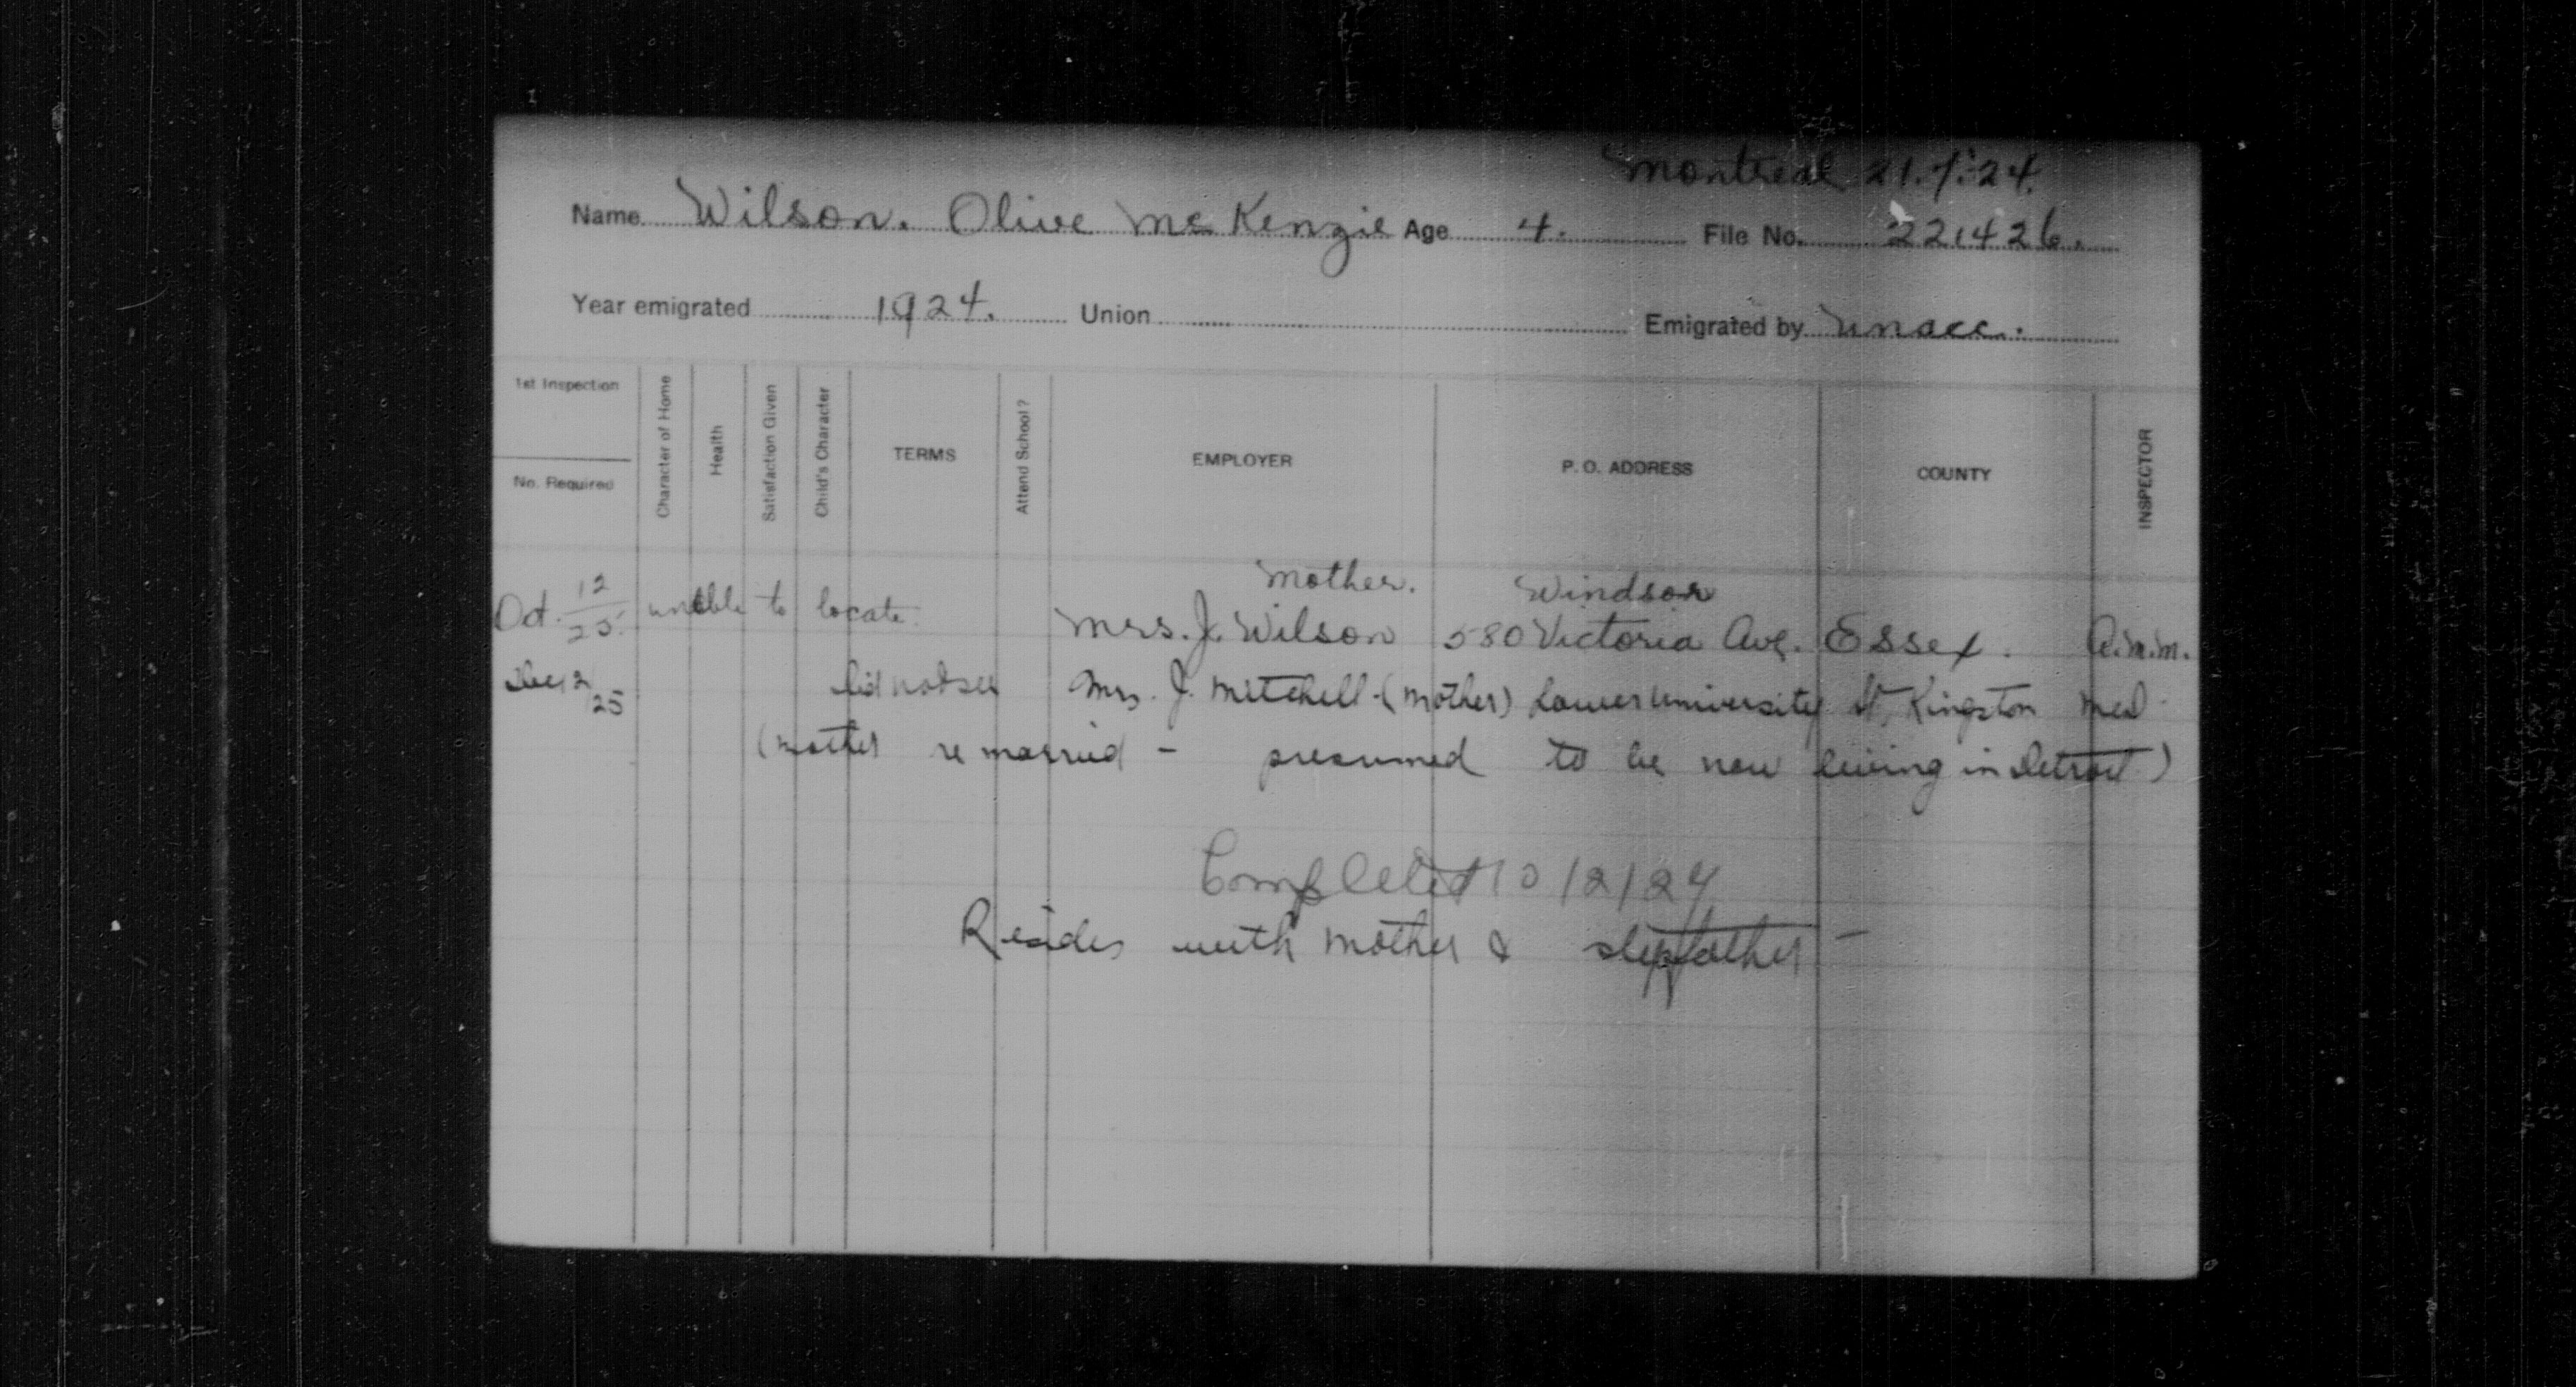 Montreal 21.7.24.
Name Wilson. Olive McKenzie Age 4. File No. 221426.
Year emigrated 1924. Union Emigrated by unacc.
1st Inspection
No. Required
Character of Home
Health
Satisfaction Given
Child's Character
TERMS
Attend School?
EMPLOYER
P. O. ADDRESS
COUNTY
INSPECTOR
Mother. Windsor
Oct. 12/25. unable to locate. Mrs. J. Wilson 580 Victoria Ave. Essex. A.M.M.
Dec 12/25 did not see Mrs. J. Mitchell - (mother) Lower University St, Kingston
(mother re married - presumed to be now living in Detroit)
Completed 10/2/24
Resides with mother & stepfather -